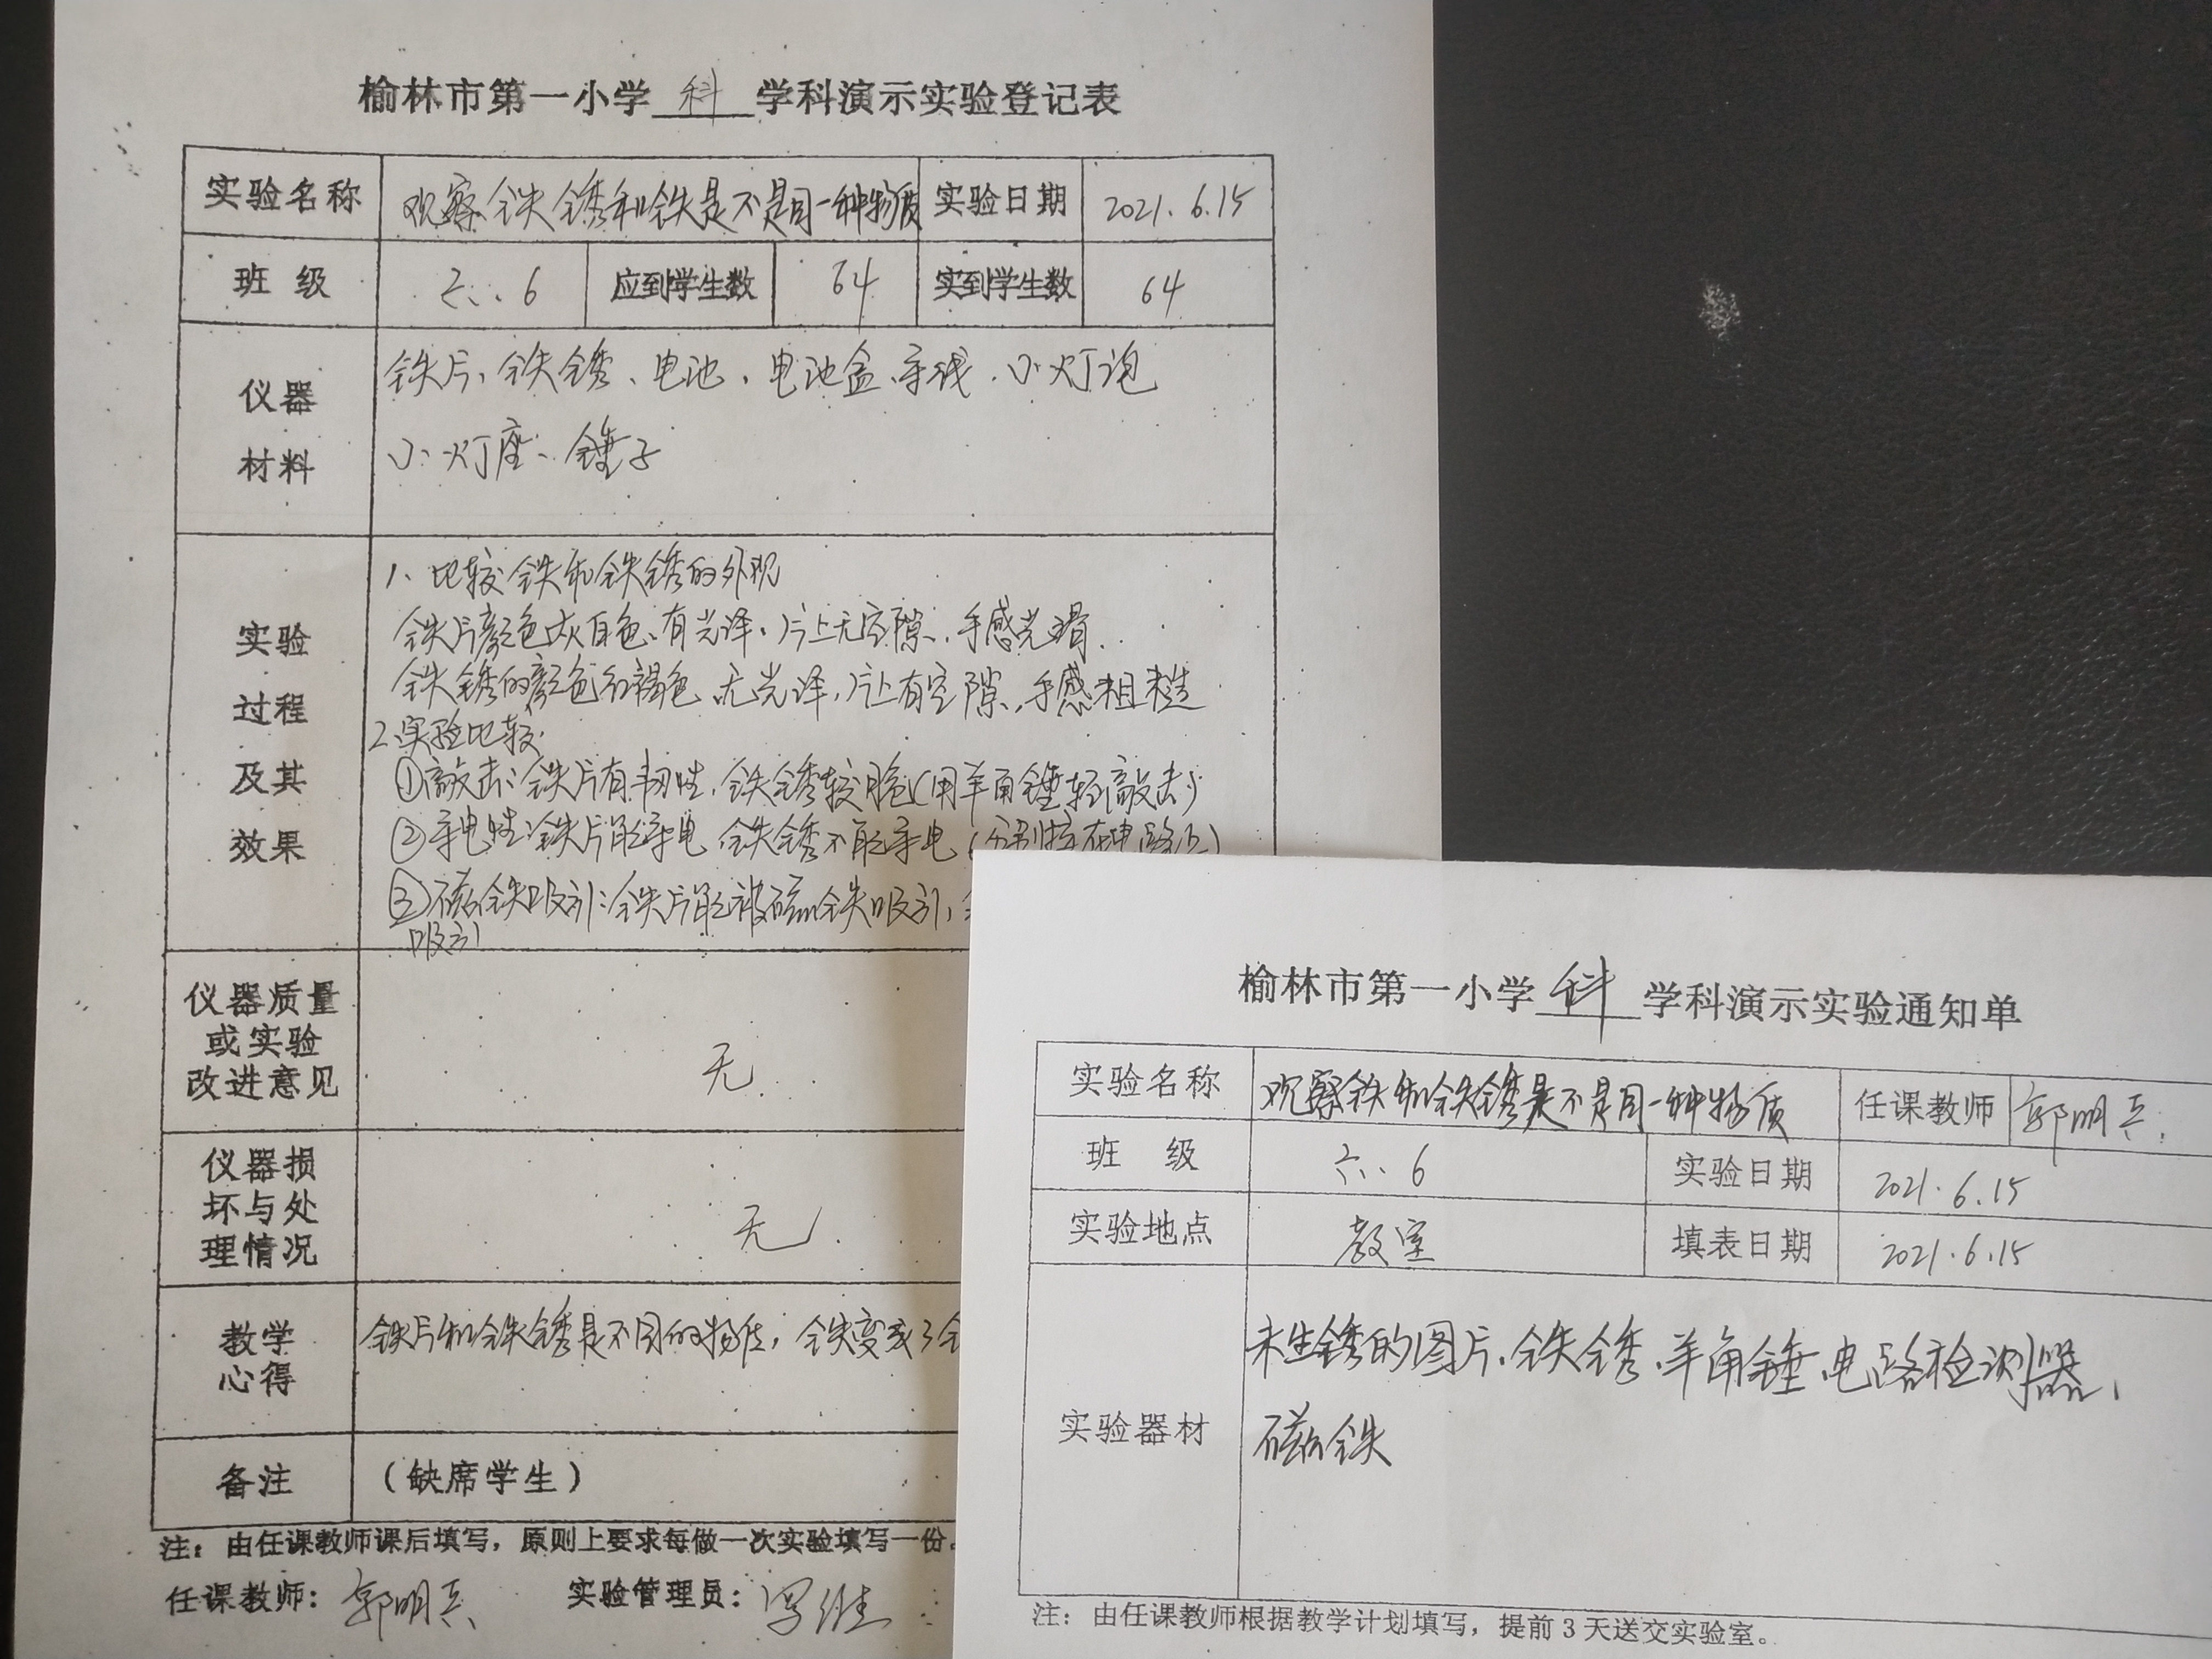 榆林市第一小学 科 学科演示实验登记表
实验名称 观察铁锈和铁是不是同一种物质 实验日期 2021.6.15
班 级 六.6 应到学生数 64 实到学生数 64
仪器
材料
铁片、铁锈、电池、电池盒、导线、小灯泡
小灯座、锤子
实验
过程
及其
效果
1、比较铁和铁锈的外观
铁片颜色灰白色、有光泽,片上无空隙,手感光滑.
铁锈的颜色红褐色、无光泽,片上有空隙,手感粗糙
2、实验比较
①敲击:铁片有韧性,铁锈较脆(用羊角锤轻敲击)
②导电性:铁片能导电 铁锈不能导电(分别接在电路上)
③磁铁吸引:铁片能被磁铁吸引,
吸引
仪器质量
或实验
改进意见
无
仪器损
坏与处
理情况
无
教学
心得
铁片和铁锈是不同的物质,铁变成了
备注 (缺席学生)
注:由任课教师课后填写,原则上要求每做一次实验填写一份。
任课教师:郭明兵 实验管理员:
榆林市第一小学 科 学科演示实验通知单
实验名称 观察铁和铁锈是不是同一种物质 任课教师 郭明兵
班 级 六.6 实验日期 2021.6.15
实验地点 教室 填表日期 2021.6.15
实验器材
未生锈的图片、铁锈、羊角锤、电路检测器、
磁铁
注:由任课教师根据教学计划填写,提前3天送交实验室。